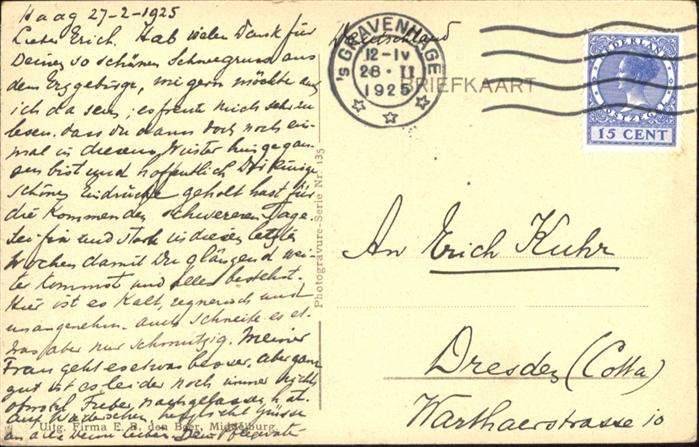 Haag 27-2-1925
Lieber Erich. Hab vielen Dank für
Deinen so schönen Schneegruss aus
dem Erzgebirge, wie gern möchte auch
ich da sein; es freute mich sehr zu
lesen, dass du dann doch noch ein-
mal in diesem Winter hingegan-
gen bist und hoffentlich
schöne Eindrücke geholt hast für
die kommenden schweren Tage.
Sei fin und stark in diesen letzten
Wochen damit Du glänzend wei-
ter kommst und alles bestehst.
Hier ist es kalt, regnerisch und
unangenehm. auch schneite es et-
was aber nur schmutzig. Meiner
Frau geht es etwas besser, aber ganz
gut ist es leider noch immer nicht,
obwohl Fieber nachgelassen hat.
Auf Wiedersehen, herzlichst Grüsse
an alle beim lieben Dein
Uitg. Firma E. B. den Boer, Middelburg.
Photogravure-Serie Nr. 135
Deutschland
's GRAVENHAGE
12-IV
28 · II
1925
BRIEFKAART
NEDERLAND
POSTZEGEL
15 CENT
An Erich Kuhr
Dresden (Cotta)
Warthaerstrasse 10